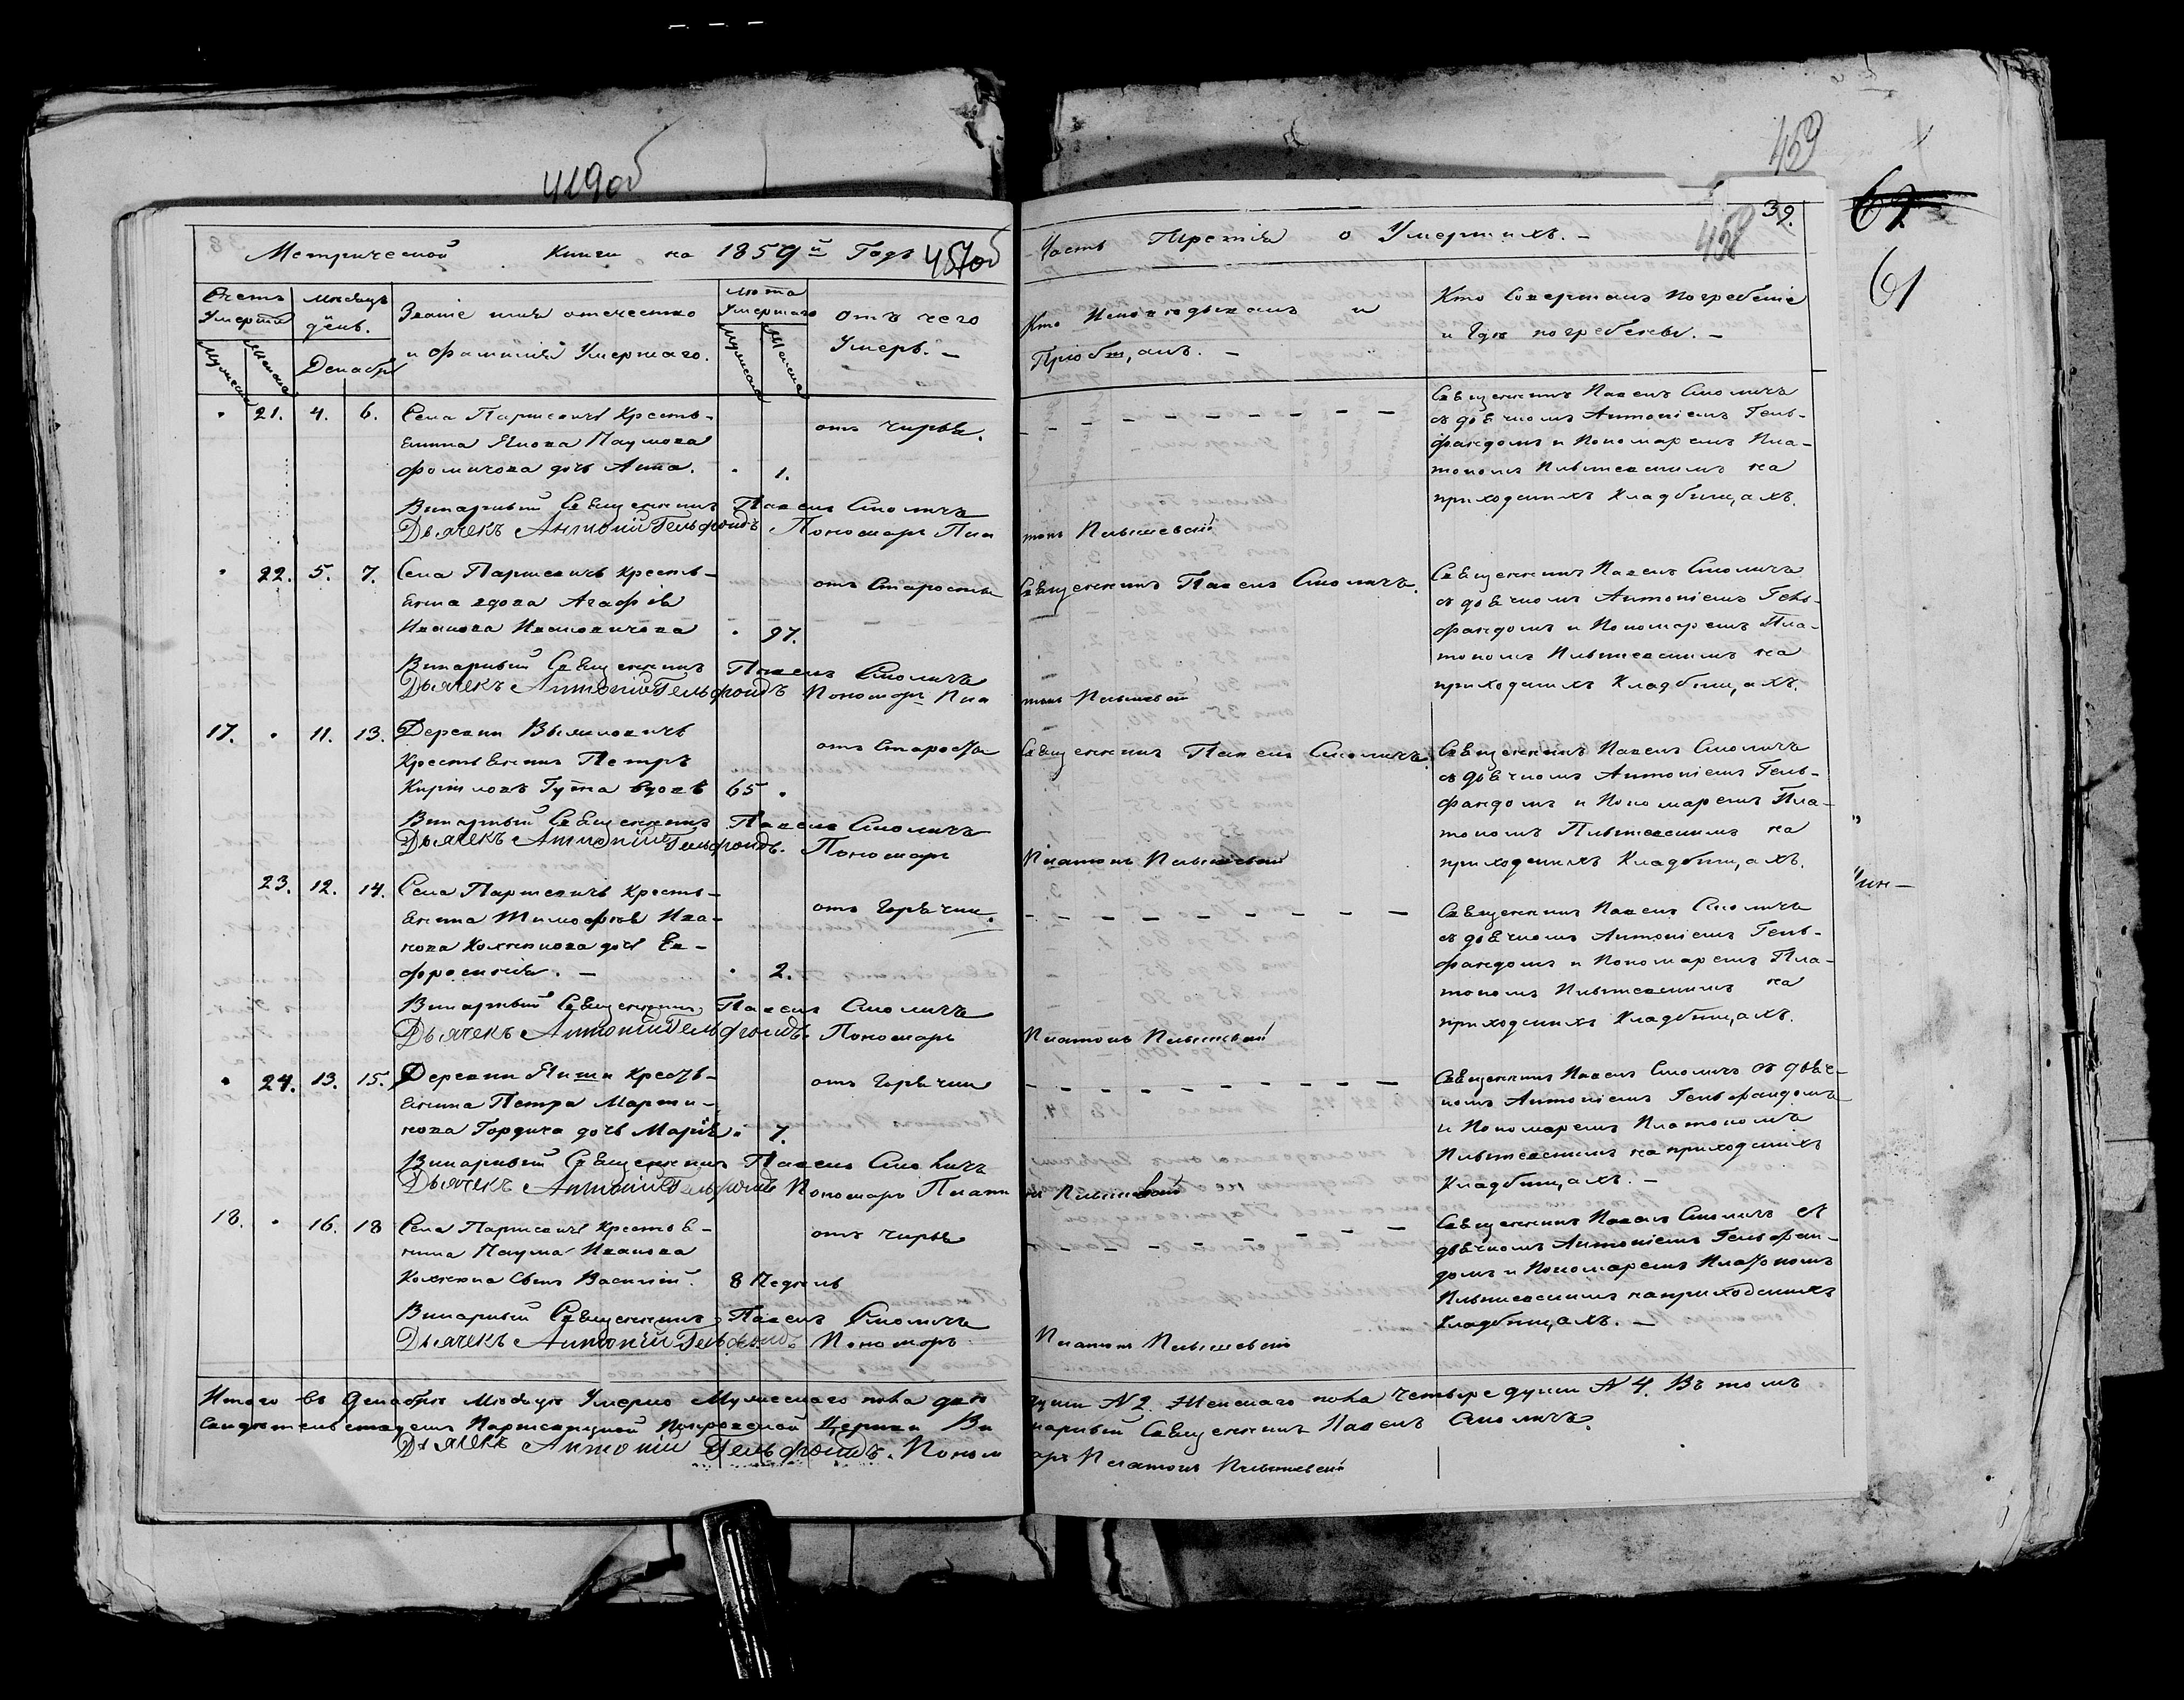 419об
453
Метрической Книги на 1859й Годъ 457об
Часть Третія о Умершихъ. –
458
39.
62
61
Счетъ Умерш.
Мужеска
Женска
Мѣсяцъ день.
Декабрь
Званіе имя отечество
и фамилія Умершаго.
Лѣта Умершаго
Мужеска
Женска
отъ чего
Умеръ. –
Кто Исповѣдывалъ и
Пріобщалъ. –
Кто Совершалъ погребеніе
и Гдѣ погребены. –
21. 4. 6. Села Паришевичъ Кресть-
янина Якова Наумова
Фомичова дочь Анна. 1.
отъ чирья.
Священникъ Павелъ Смоличъ
съ дьячкомъ Антоніемъ Гель-
фандомъ и Пономаремъ Пла-
тономъ на
приходскихъ Кладбищахъ.
Викарный Священникъ Павелъ Смоличъ
Дьячекъ Антоній Гельфондъ Пономарь Пла тонъ
22. 5. 7. Села Паришевичъ кресть-
янка вдова Агафія
Иванова Ивановичова 97.
отъ Старости
Священникъ Павелъ Смоличъ.
Священникъ Павелъ Смоличъ
съ дьячкомъ Антоніемъ Гель-
фандомъ и Пономаремъ Пла-
тономъ на
приходскихъ Кладбищахъ.
Викарный Священникъ Павелъ Смоличъ
Дьячекъ Антоній Гельфондъ Пономарь Пла тонъ
17. 11. 13. Деревни
Крестьянинъ Петръ
Кириловъ вдовъ 65
отъ Старости
Священникъ Павелъ Смоличъ.
Священникъ Павелъ Смоличъ
съ дьячкомъ Антоніемъ Гель-
фандомъ и Пономаремъ Пла-
тономъ на
приходскихъ Кладбищахъ.
Викарный Священникъ Павелъ Смоличъ
Дьячекъ Антоній Гельфондъ. Пономарь Платонъ
23. 12. 14. Села Паришевичъ Кресть-
янина Тимофѣя Ива-
нова дочь Ев-
фросинія. – 2.
отъ Горячки.
Священникъ Павелъ Смоличъ
съ дьячкомъ Антоніемъ Гель-
фандомъ и Пономаремъ Пла-
тономъ на
приходскихъ Кладбищахъ.
Викарный Священникъ Павелъ Смоличъ
Дьячекъ Антоній Гельфондъ. Пономарь Платонъ
24. 13. 15. Деревни Кресть-
янина Петра Марти-
нова Гордича дочь Марія 7.
отъ Горячки
Священникъ Павелъ Смоличъ съ дьяч-
комъ Антоніемъ Гельфандомъ
и Пономаремъ Платономъ
на приходскихъ
Кладбищахъ. –
Викарный Священникъ Павелъ Смоличъ
Дьячекъ Антоній Гельфондъ Пономарь Платонъ
18. 16. 18 Села Паришевичъ Крестья-
нина Наума Иванова
Сынъ Василій. 8 Недѣль
отъ чирья
Священникъ Павелъ Смоличъ съ
дьячкомъ Антоніемъ Гельфан-
домъ и Пономаремъ Платономъ
на приходскихъ
Кладбищахъ. –
Викарный Священникъ Павелъ Смоличъ
Дьячекъ Антоній Гельфондъ. Пономарь Платонъ
Итого въ Декабрѣ Мѣсяцѣ Умерло Мужескаго пола двѣ души N 2. Женскаго пола четыре души N 4. Въ томъ
свидѣтельствуемъ Паришевицкой Покровской Церкви Ви карный Священникъ Павелъ Смоличъ.
Дьячекъ Антоній Гельфондъ. Поном арь Платонъ